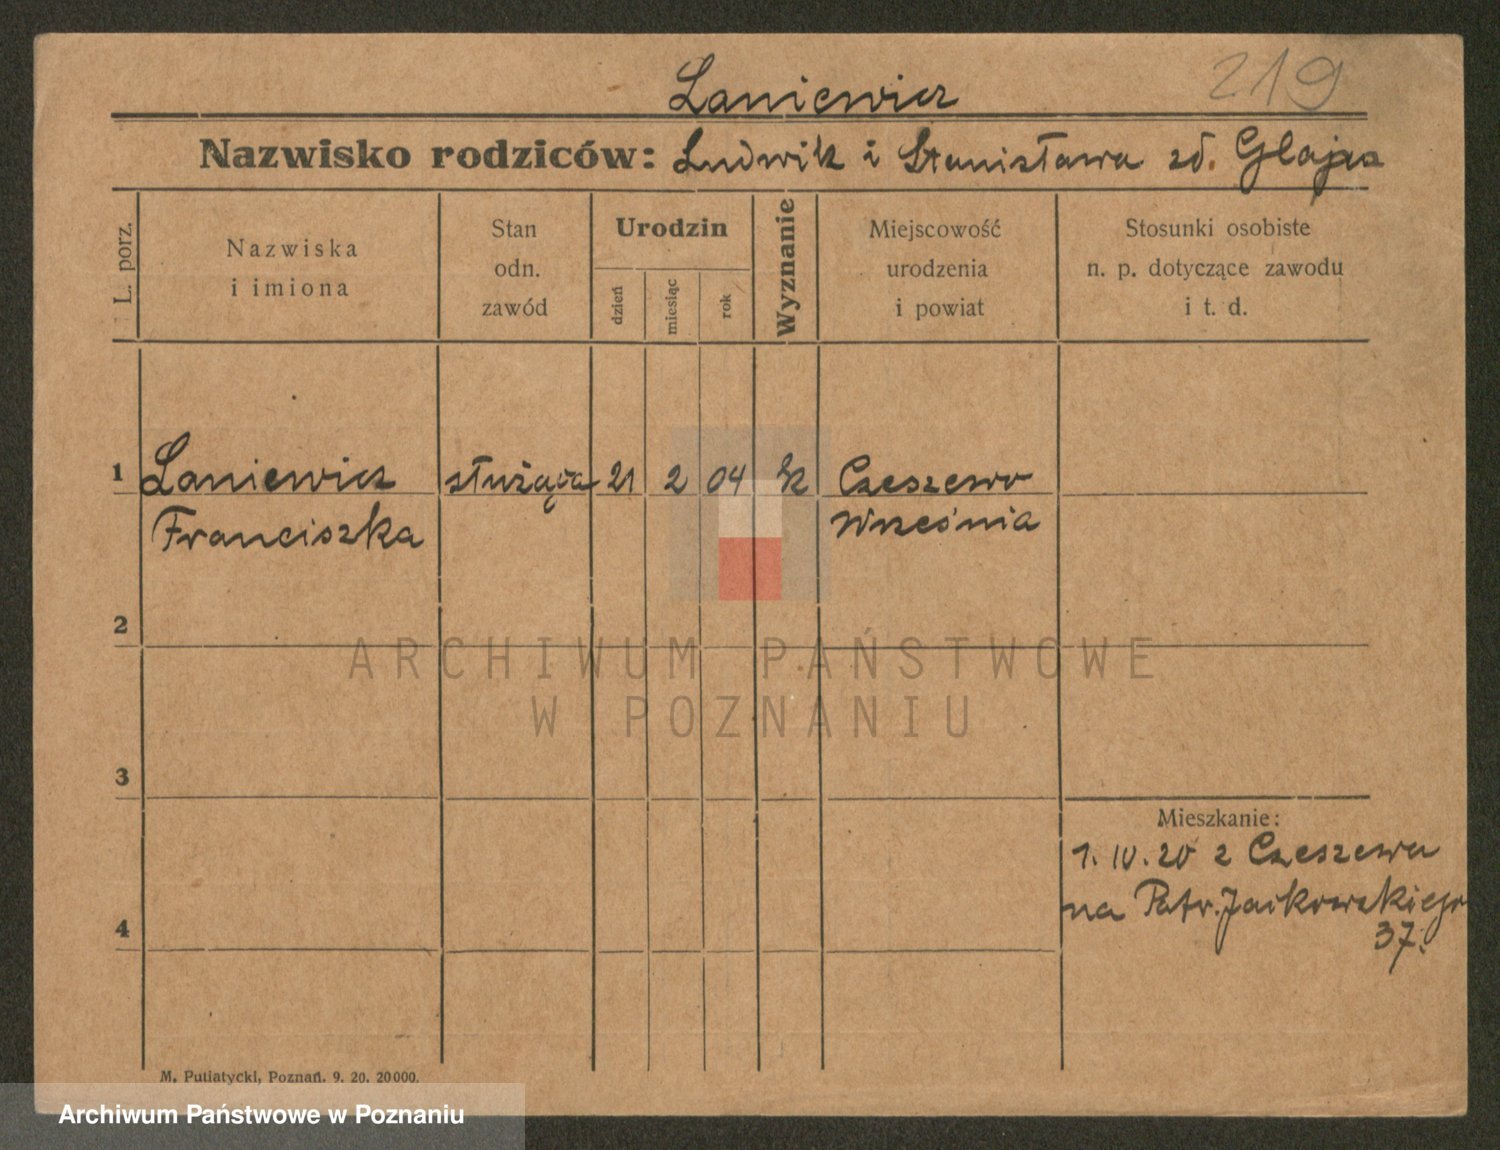 219
Laniewicz
Nazwisko rodziców: Ludwik i Stanisława zd.
L. porz.
Nazwiska
i imiona
Stan
odn.
zawód
Urodzin
dzień
miesiąc
rok
Wyznanie
Miejscowość
urodzenia
i powiat
Stosunki osobiste
n. p. dotyczące zawodu
i t. d.
1 Laniewicz służąca 21 2 04 k Czeszewo
Franciszka Września
2
3
4
Mieszkanie:
1. IV. 20 z Czeszewa
na Patr. Jackowskiego
37.
M. Putiatycki, Poznań. 9. 20. 20000.
ARCHIWUM PAŃSTWOWE
W POZNANIU
Archiwum Państwowe w Poznaniu